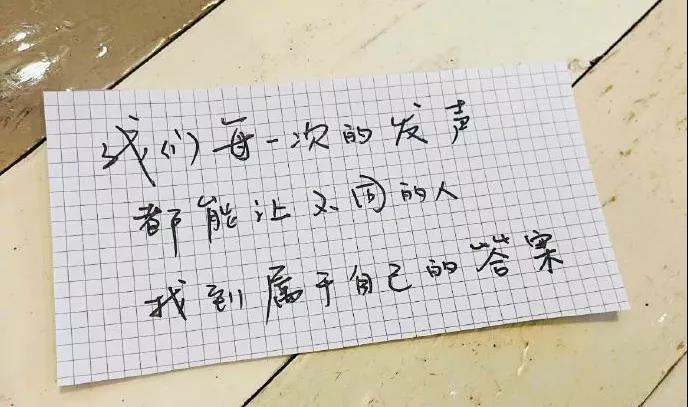 我们每一次的发声
都能让不同的人
找到属于自己的答案